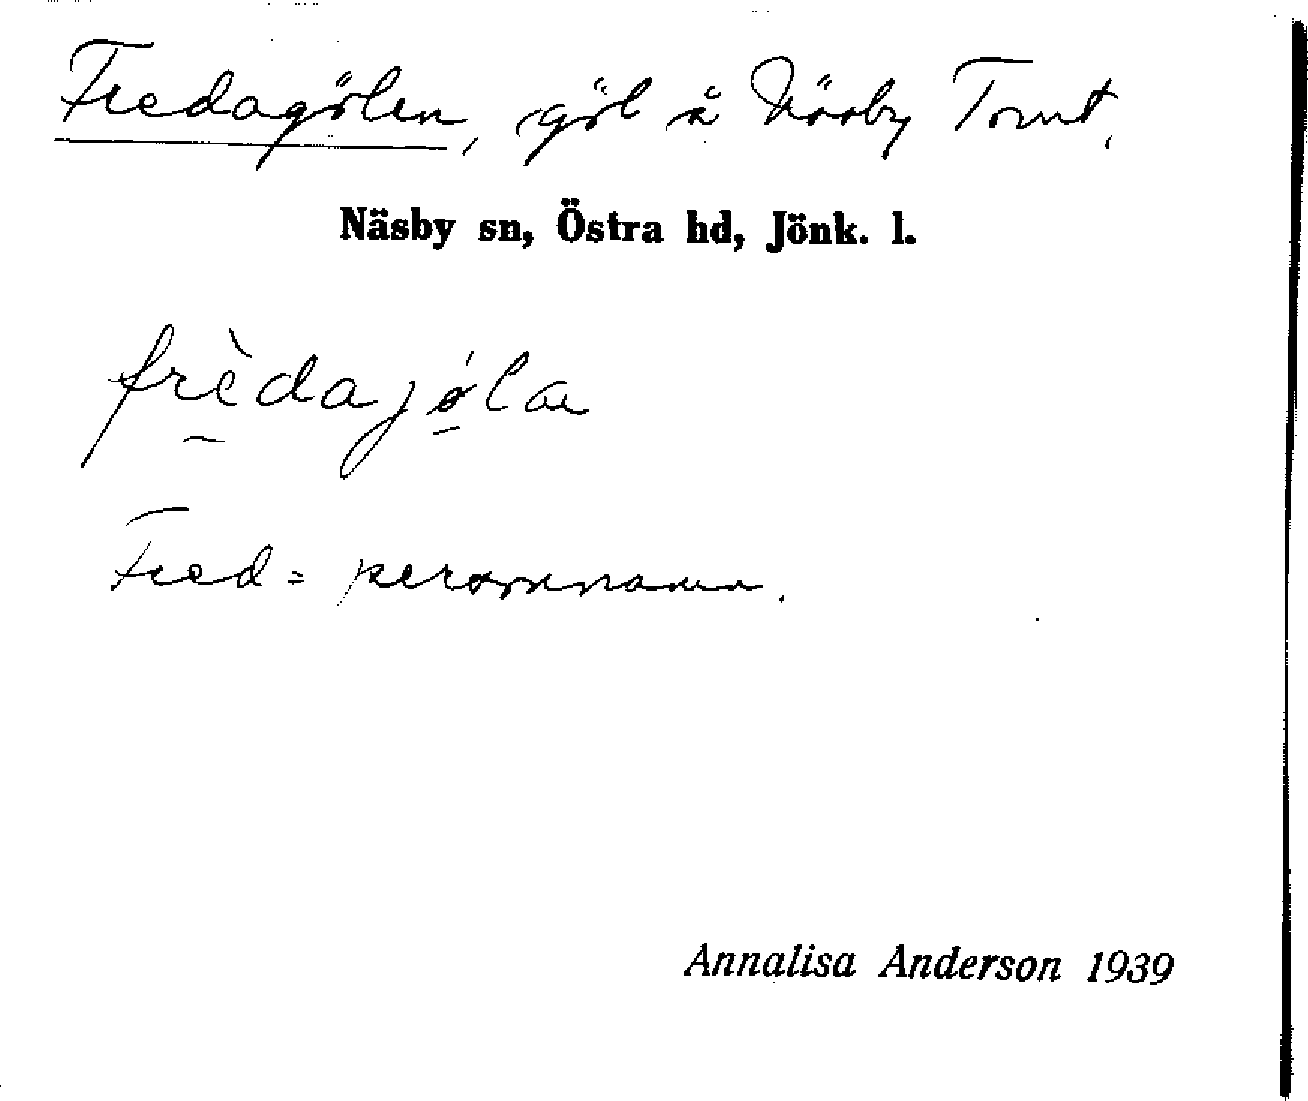 Fredagölen, göl å Näsby Tomt,
Näsby sn, Östra hd, Jönk. l.
frèdajǿlan
Fred = personnamn.
Annalisa Anderson 1939